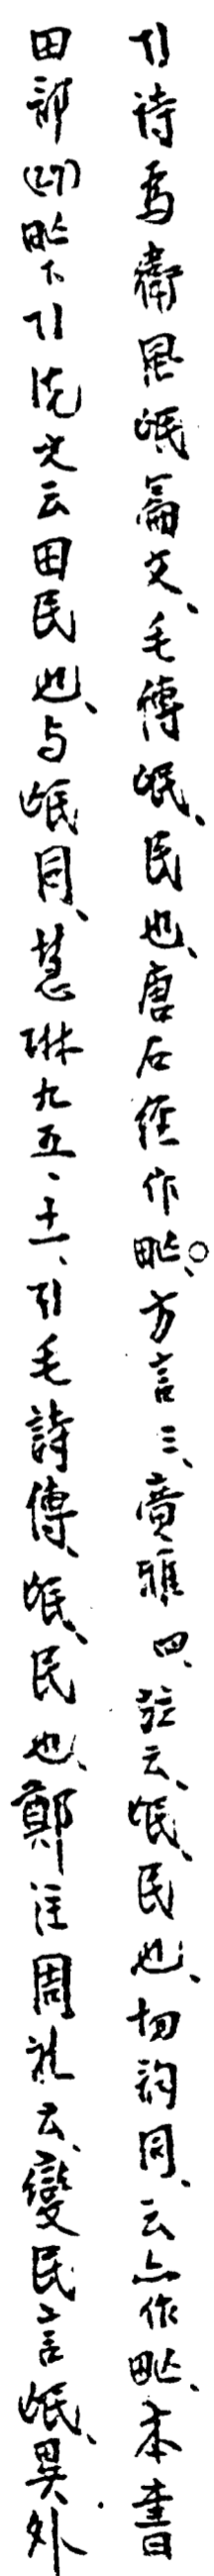 引詩為衛風氓篇文、毛傳氓、民也、唐石经作甿、方言三、廣雅四、竝云、氓、民也、切韵同、云亦作甿、本書
田部(27)甿下引说文云田民也、与氓同、慧琳九五、十一、引毛詩傳、氓、民也、鄭注周礼云、變民言氓、異外